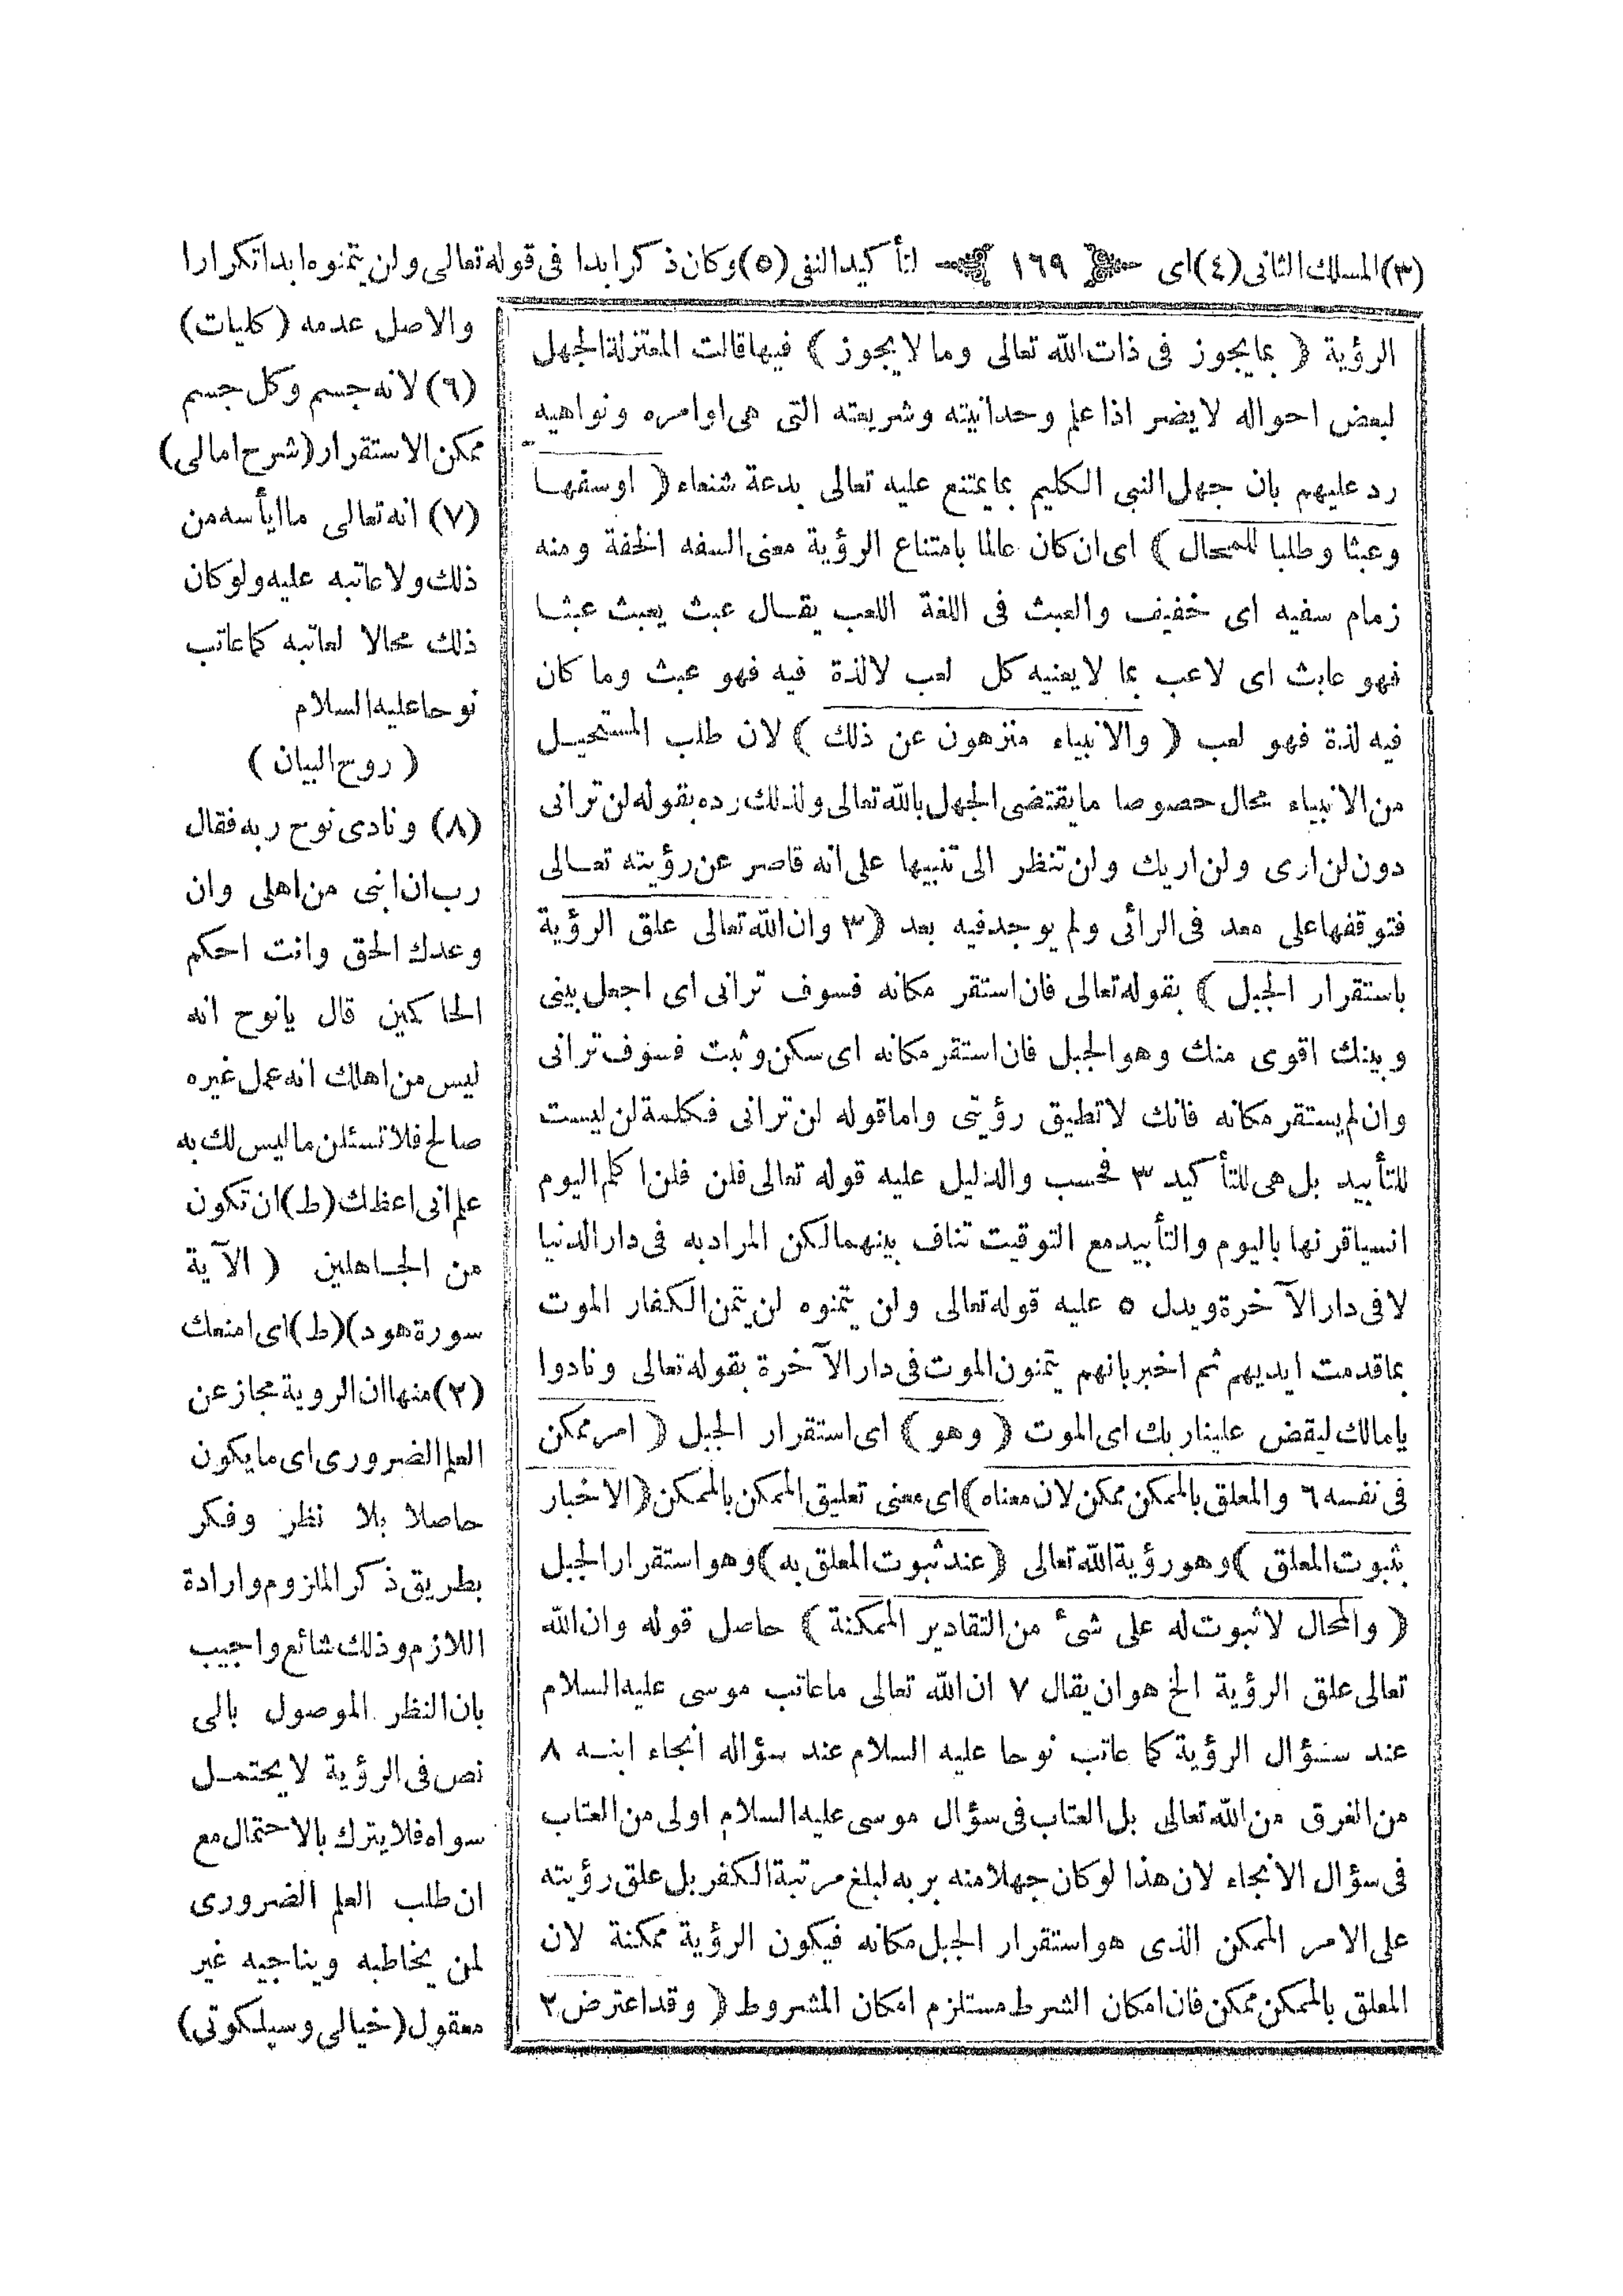 (٣) المسلك الثانى (٤) اى ١٦٩ لتأكيد النفى (٥) وكان ذكر ابدا فى قوله تعالى ولن يتمنوه ابدا تكرارا
الرؤية ( بما يجوز فى ذات الله تعالى وما لا يجوز ) فيها قالت المعتزلة الجهل
لبعض احواله لا يضر اذا علم وحدانيته وشريعته التى هى اوامره ونواهيه
رد عليهم بان جهل النبى الكليم بما يمتنع عليه تعالى بدعة شنعاء ( او سفها
وعبثا وطلبا للمحال ) اى ان كان عالما بامتناع الرؤية معنى السفه الخفة ومنه
زمام سفيه اى خفيف والعبث فى اللغة اللعب يقال عبث يعبث عبثا
فهو عابث اى لاعب بما لا يعنيه كل لعب لا لذة فيه فهو عبث وما كان
فيه لذة فهو لعب ( والانبياء منزهون عن ذلك ) لان طلب المستحيل
من الانبياء محال حصوصا ما يقتضى الجهل بالله تعالى ولذلك رده بقوله لن ترانى
دون لن ارى ولن اريك ولن تنظر الى تنبيها على انه قاصر عن رؤيته تعالى
فتوقفها على معد فى الرائى ولم يوجد فيه بعد ( ٣ وان الله تعالى علق الرؤية
باستقرار الجبل ) بقوله تعالى فان استقر مكانه فسوف ترانى اى اجعل بينى
وبينك اقوى منك وهو الجبل فان استقر مكانه اى سكن وثبت فسوف ترانى
وان لم يستقر مكانه فانك لا تطيق رؤيتى واما قوله لن ترانى فكلمة لن ليست
للتأبيد بل هى للتأكيد ٣ فحسب والدليل عليه قوله تعالى فلن فلن اكلم اليوم
انسيا قرنها باليوم والتأبيد مع التوقيت تناف بينهما لكن المراد به فى دار الدنيا
لا فى دار الآخرة ويدل ٥ عليه قوله تعالى ولن يتمنوه لن يتمن الكفار الموت
بما قدمت ايديهم ثم اخبر بانهم يتمنون الموت فى دار الآخرة بقوله تعالى ونادوا
يا مالك ليقض علينا ربك اى الموت ( وهو ) اى استقرار الجبل ( امر ممكن
فى نفسه ٦ والمعلق بالممكن ممكن لان معناه ) اى معنى تعليق الممكن بالممكن ( الاخبار
بثبوت المعلق ) وهو رؤية الله تعالى ( عند ثبوت المعلق به ) وهو استقرار الجبل
( والمحال لا ثبوت له على شئ من التقادير الممكنة ) حاصل قوله وان الله
تعالى علق الرؤية الخ هو ان يقال ٧ ان الله تعالى ما عاتب موسى عليه السلام
عند سؤال الرؤية كما عاتب نوحا عليه السلام عند سؤاله انجاء ابنه ٨
من الغرق من الله تعالى بل العتاب فى سؤال موسى عليه السلام اولى من العتاب
فى سؤال الانجاء لان هذا لو كان جهلا منه بربه لبلغ مرتبة الكفر بل علق رؤيته
على الامر الممكن الذى هو استقرار الجبل مكانه فيكون الرؤية ممكنة لان
المعلق بالممكن ممكن فان امكان الشرط مستلزم امكان المشروط ( وقد اعترض ٢
والاصل عدمه (كليات)
(٦) لانه جسم وكل جسم
ممكن الاستقرار (شرح امالى)
(٧) انه تعالى ما ايأسه من
ذلك ولا عاتبه عليه ولو كان
ذلك محالا لعاتبه كما عاتب
نوحا عليه السلام
( روح البيان )
(٨) ونادى نوح ربه فقال
رب ان ابنى من اهلى وان
وعدك الحق وانت احكم
الحاكمين قال يا نوح انه
ليس من اهلك انه عمل غيره
صالح فلا تسئلن ما ليس لك به
علم انى اعظك (ط) ان تكون
من الجاهلين ( الآية
سورة هود) (ط) اى امنعك
(٢) منها ان الروية مجاز عن
العلم الضرورى اى ما يكون
حاصلا بلا نظر وفكر
بطريق ذكر الملزوم وارادة
اللازم وذلك شائع واجيب
بان النظر الموصول بالى
نص فى الرؤية لا يحتمل
سواه فلا يترك بالاحتمال مع
ان طلب العلم الضرورى
لمن يخاطبه ويناجيه غير
معقول (خيالى وسيلكوتى)